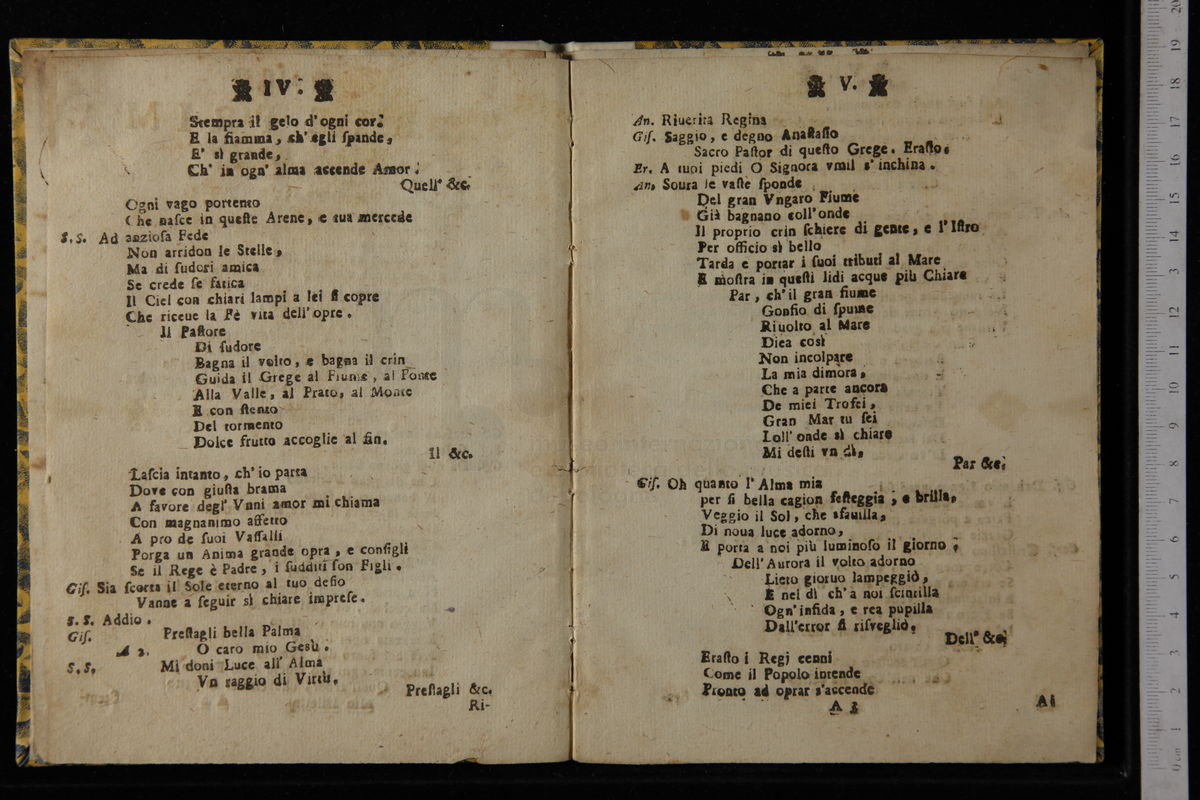 IV.
Stempra il gelo d'ogni cor.
E la fiamma, ch'egli ſpande,
E' sì grande,
Ch' in ogn' alma accende Amor.
Quell' &c.
Ogni vago portento
Che naſce in queſte Arene, e tua mercede
S. S. Ad anzioſa Fede
Non arridon le Stelle,
Ma di ſudori amica
Se crede ſe fatica
Il Ciel con chiari lampi a lei ſi copre
Che riceue la Fè vita dell' opre.
Il Paſtore
Di ſudore
Bagna il volto, e bagna il crin
Guida il Grege al Fiume, al Fonte
Alla Valle, al Prato, al Monte
E con ſtento
Del tormento
Dolce frutto accoglie al fin.
Il &c.
Laſcia intanto, ch' io parta
Dove con giuſta brama
A favore degl' Vnni amor mi chiama
Con magnanimo affetto
A pro de ſuoi Vaſſalli
Porga un Anima grande opra, e conſigli
Se il Rege è Padre, i ſudditi ſon Figli.
Giſ. Sia ſcorta il Sole eterno al tuo deſio
Vanne a ſeguir sì chiare impreſe.
S. S. Addio.
Giſ. Preſtagli bella Palma
A 2. O caro mio Gesù.
S. S. Mi doni Luce all' Alma
Vn raggio di Virtù.
Preſtagli &c.
Ri-
V.
An. Riuerita Regina
Giſ. Saggio, e degno Anaſtaſio
Sacro Paſtor di queſto Grege. Eraſto.
Er. A tuoi piedi O Signora vmil s' inchina.
An. Soura le vaſte ſponde
Del gran Vngaro Fiume
Già bagnano coll' onde
Il proprio crin ſchiere di gente, e l' Iſtro
Per officio sì bello
Tarda e portar i ſuoi tributi al Mare
E moſtra in queſti lidi acque più Chiare
Par, ch'il gran fiume
Gonfio di ſpume
Riuolto al Mare
Dica così
Non incolpare
La mia dimora,
Che a parte ancora
De miei Trofei,
Gran Mar tu ſei
Loll' onde sì chiare
Mi deſti vn dì,
Par &c.
Giſ. Oh quanto l' Alma mia
per ſi bella cagion feſteggia, e brilla,
Veggio il Sol, che sfauilla,
Di noua luce adorno,
E porta a noi più luminoſo il giorno;
Dell' Aurora il volto adorno
Lieto gioruo lampeggiò,
E nei dì ch' a noi ſcintilla
Ogn' infida, e rea pupilla
Dall'error ſi riſvegliò.
Dell' &c.
Eraſto i Regj cenni
Come il Popolo intende
Pronto ad oprar s'accende
A 3
Ai